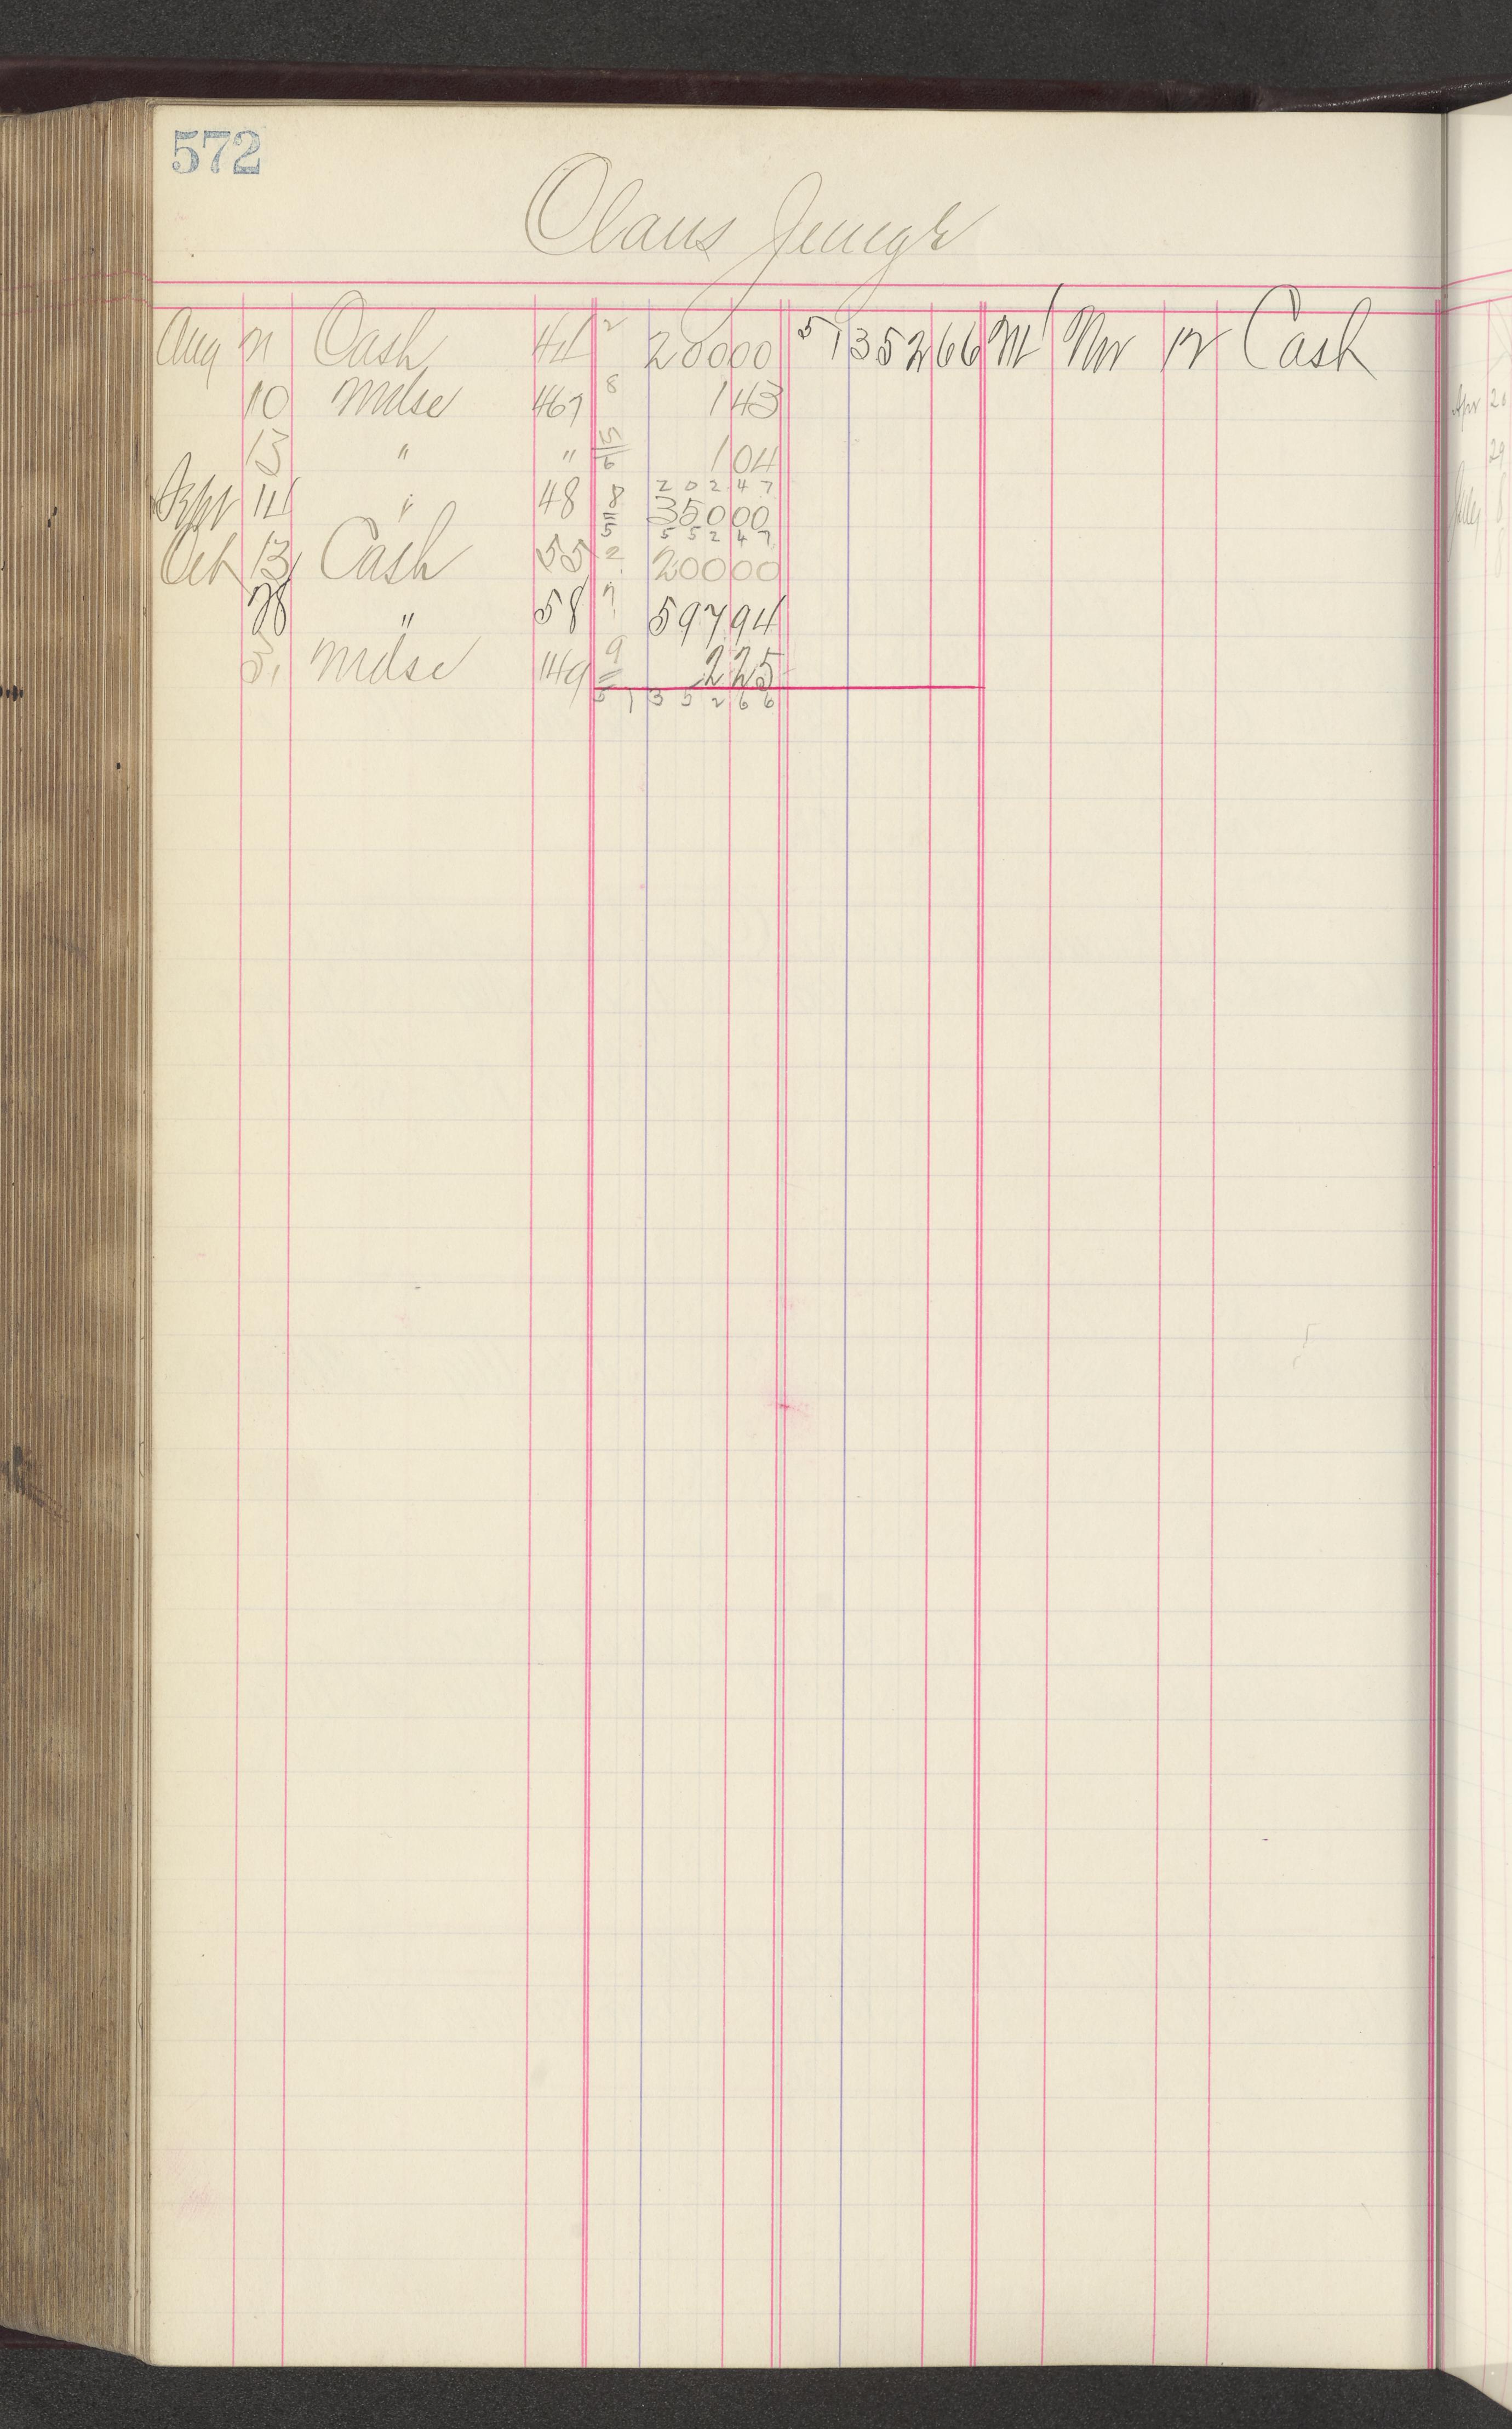 572
Claus
Aug 21 Cash 44 2 20000 5 135266 Nov 12 Cash
10 Mdse 467 8 143
13 " " 5/6 104
20247
Sept 14 " 48 8/5 35000
55247
Oct 13 Cash 55 2 20000
28 " 58 7 59794
31 Mdse 149 9 225
5 135266
Apr 20
29
July 8